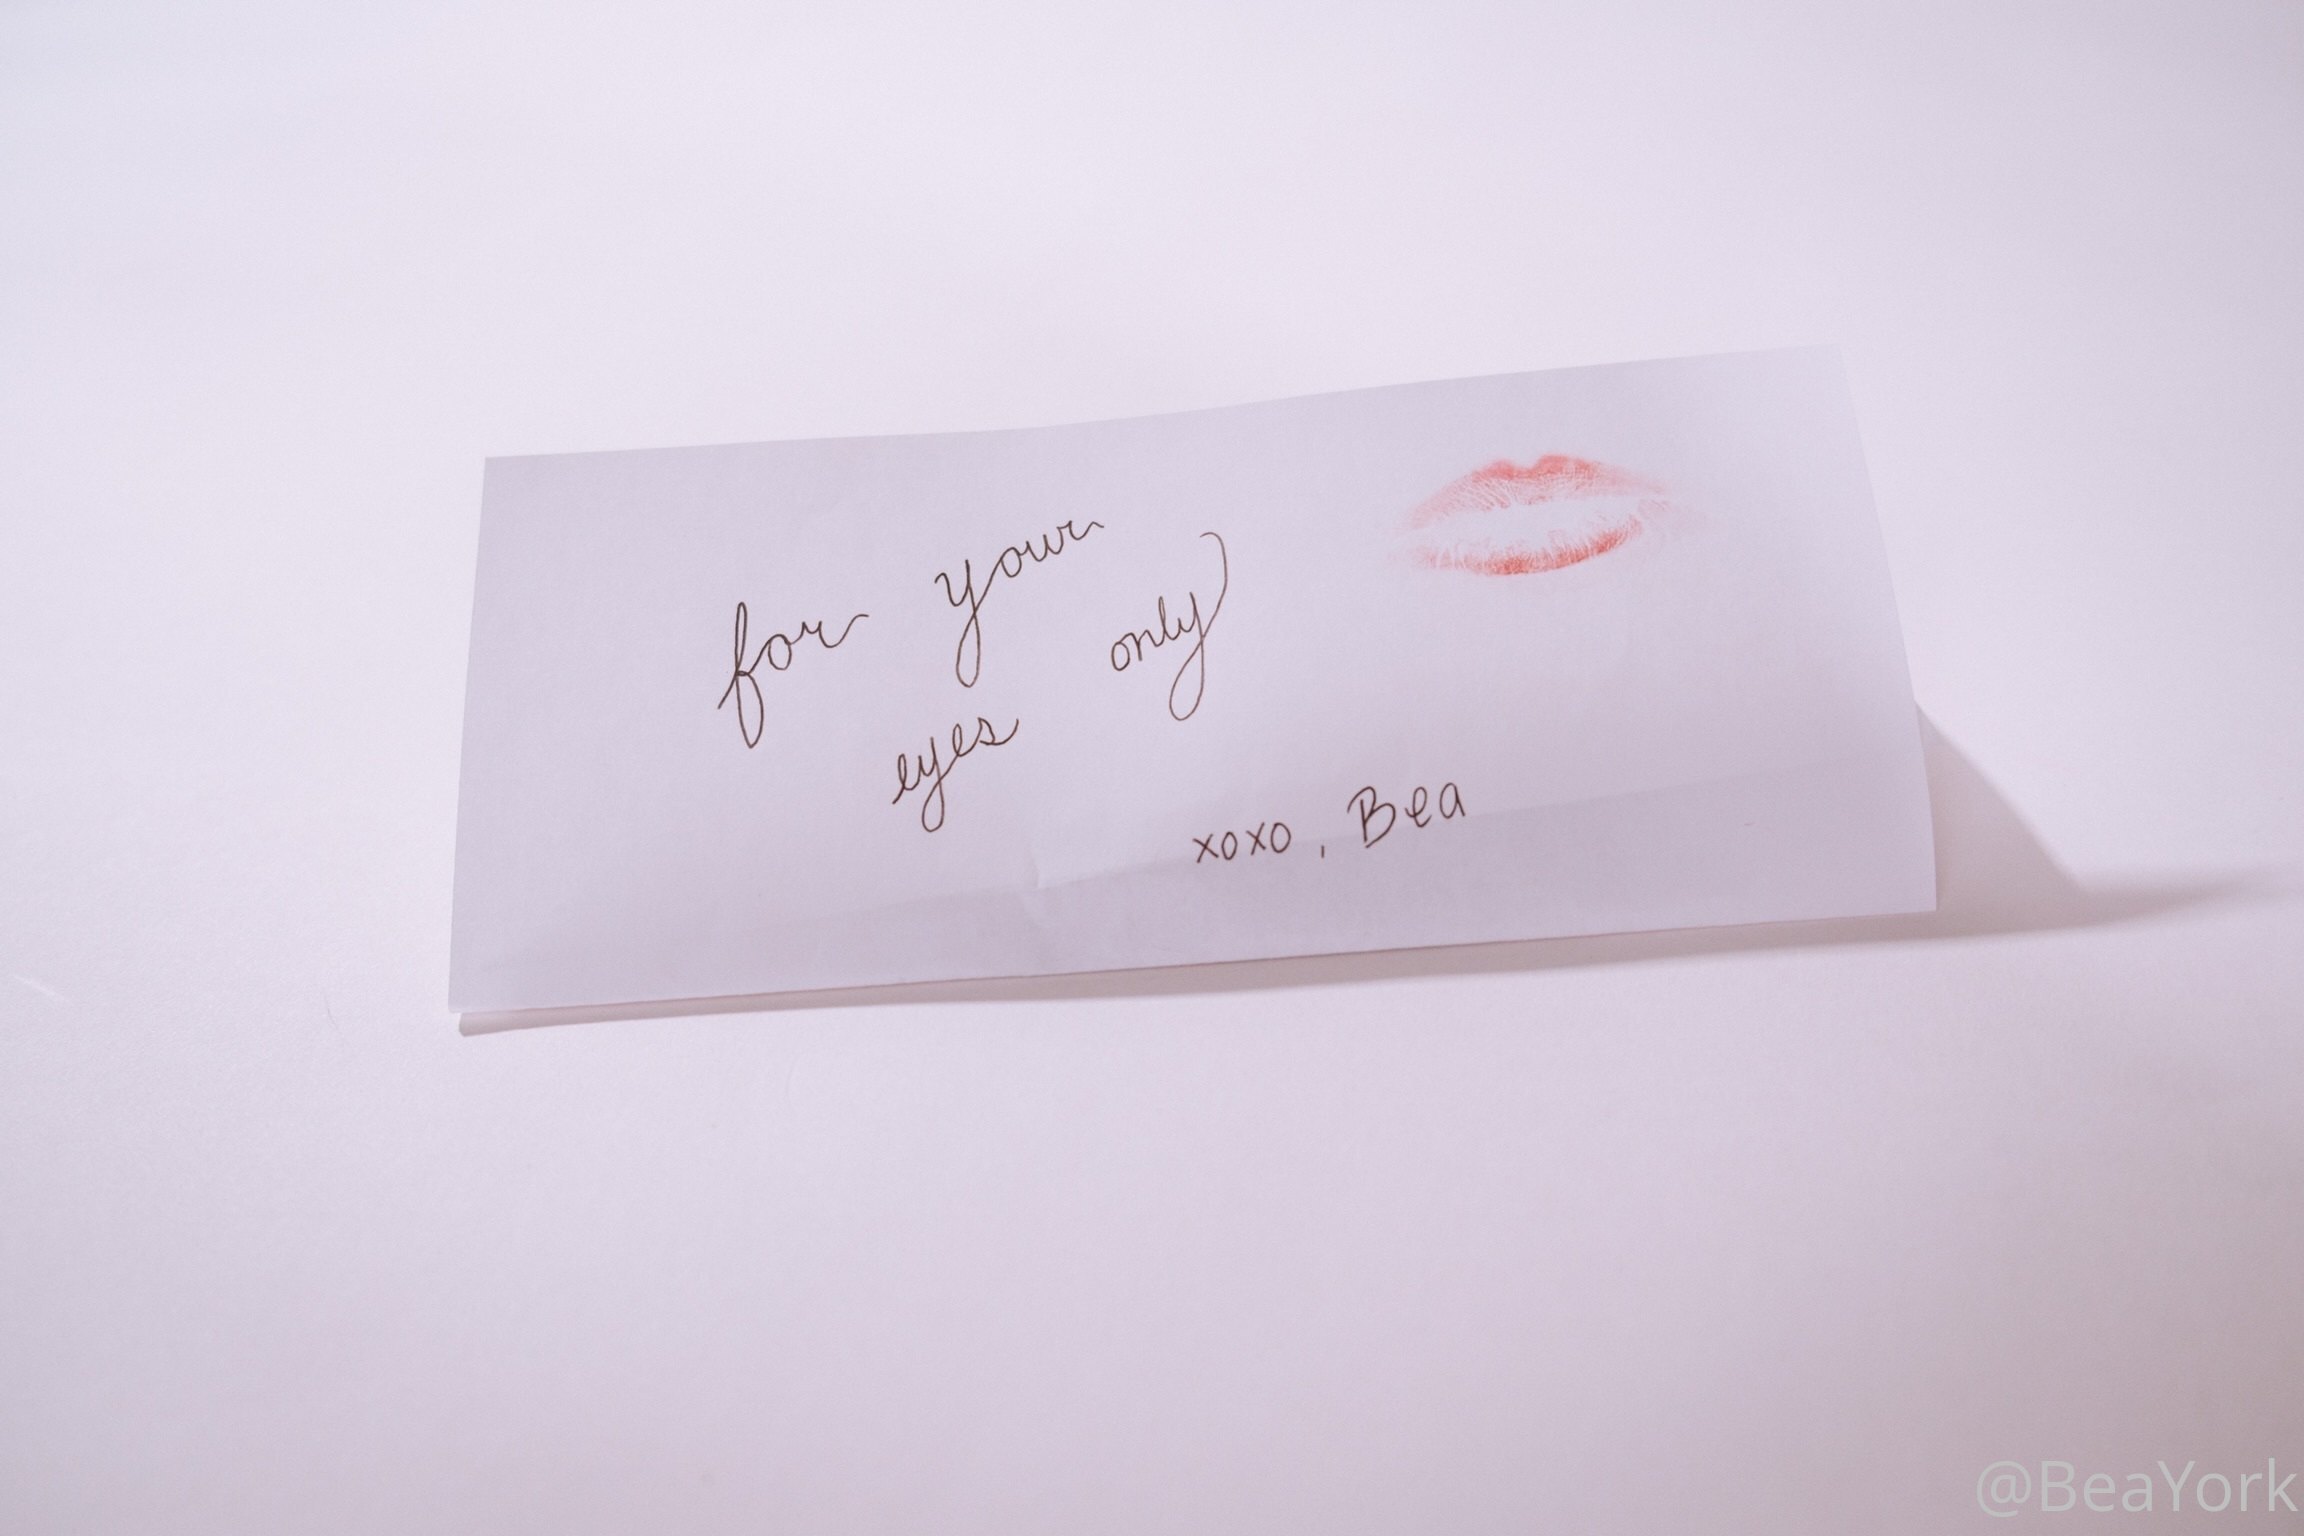 for your
eyes only
xoxo, Bea
@BeaYork